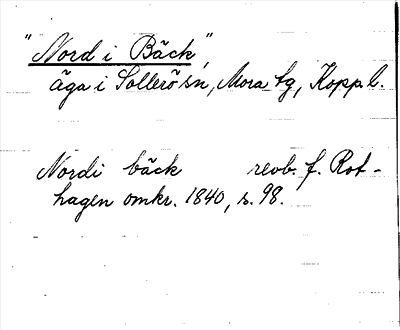 "Nord i Bäck",
äga i Sollerö sn, Mora tg, Kopp.l.
Nordi bäck revb. f. Rot-
hagen omkr. 1840, s. 98.